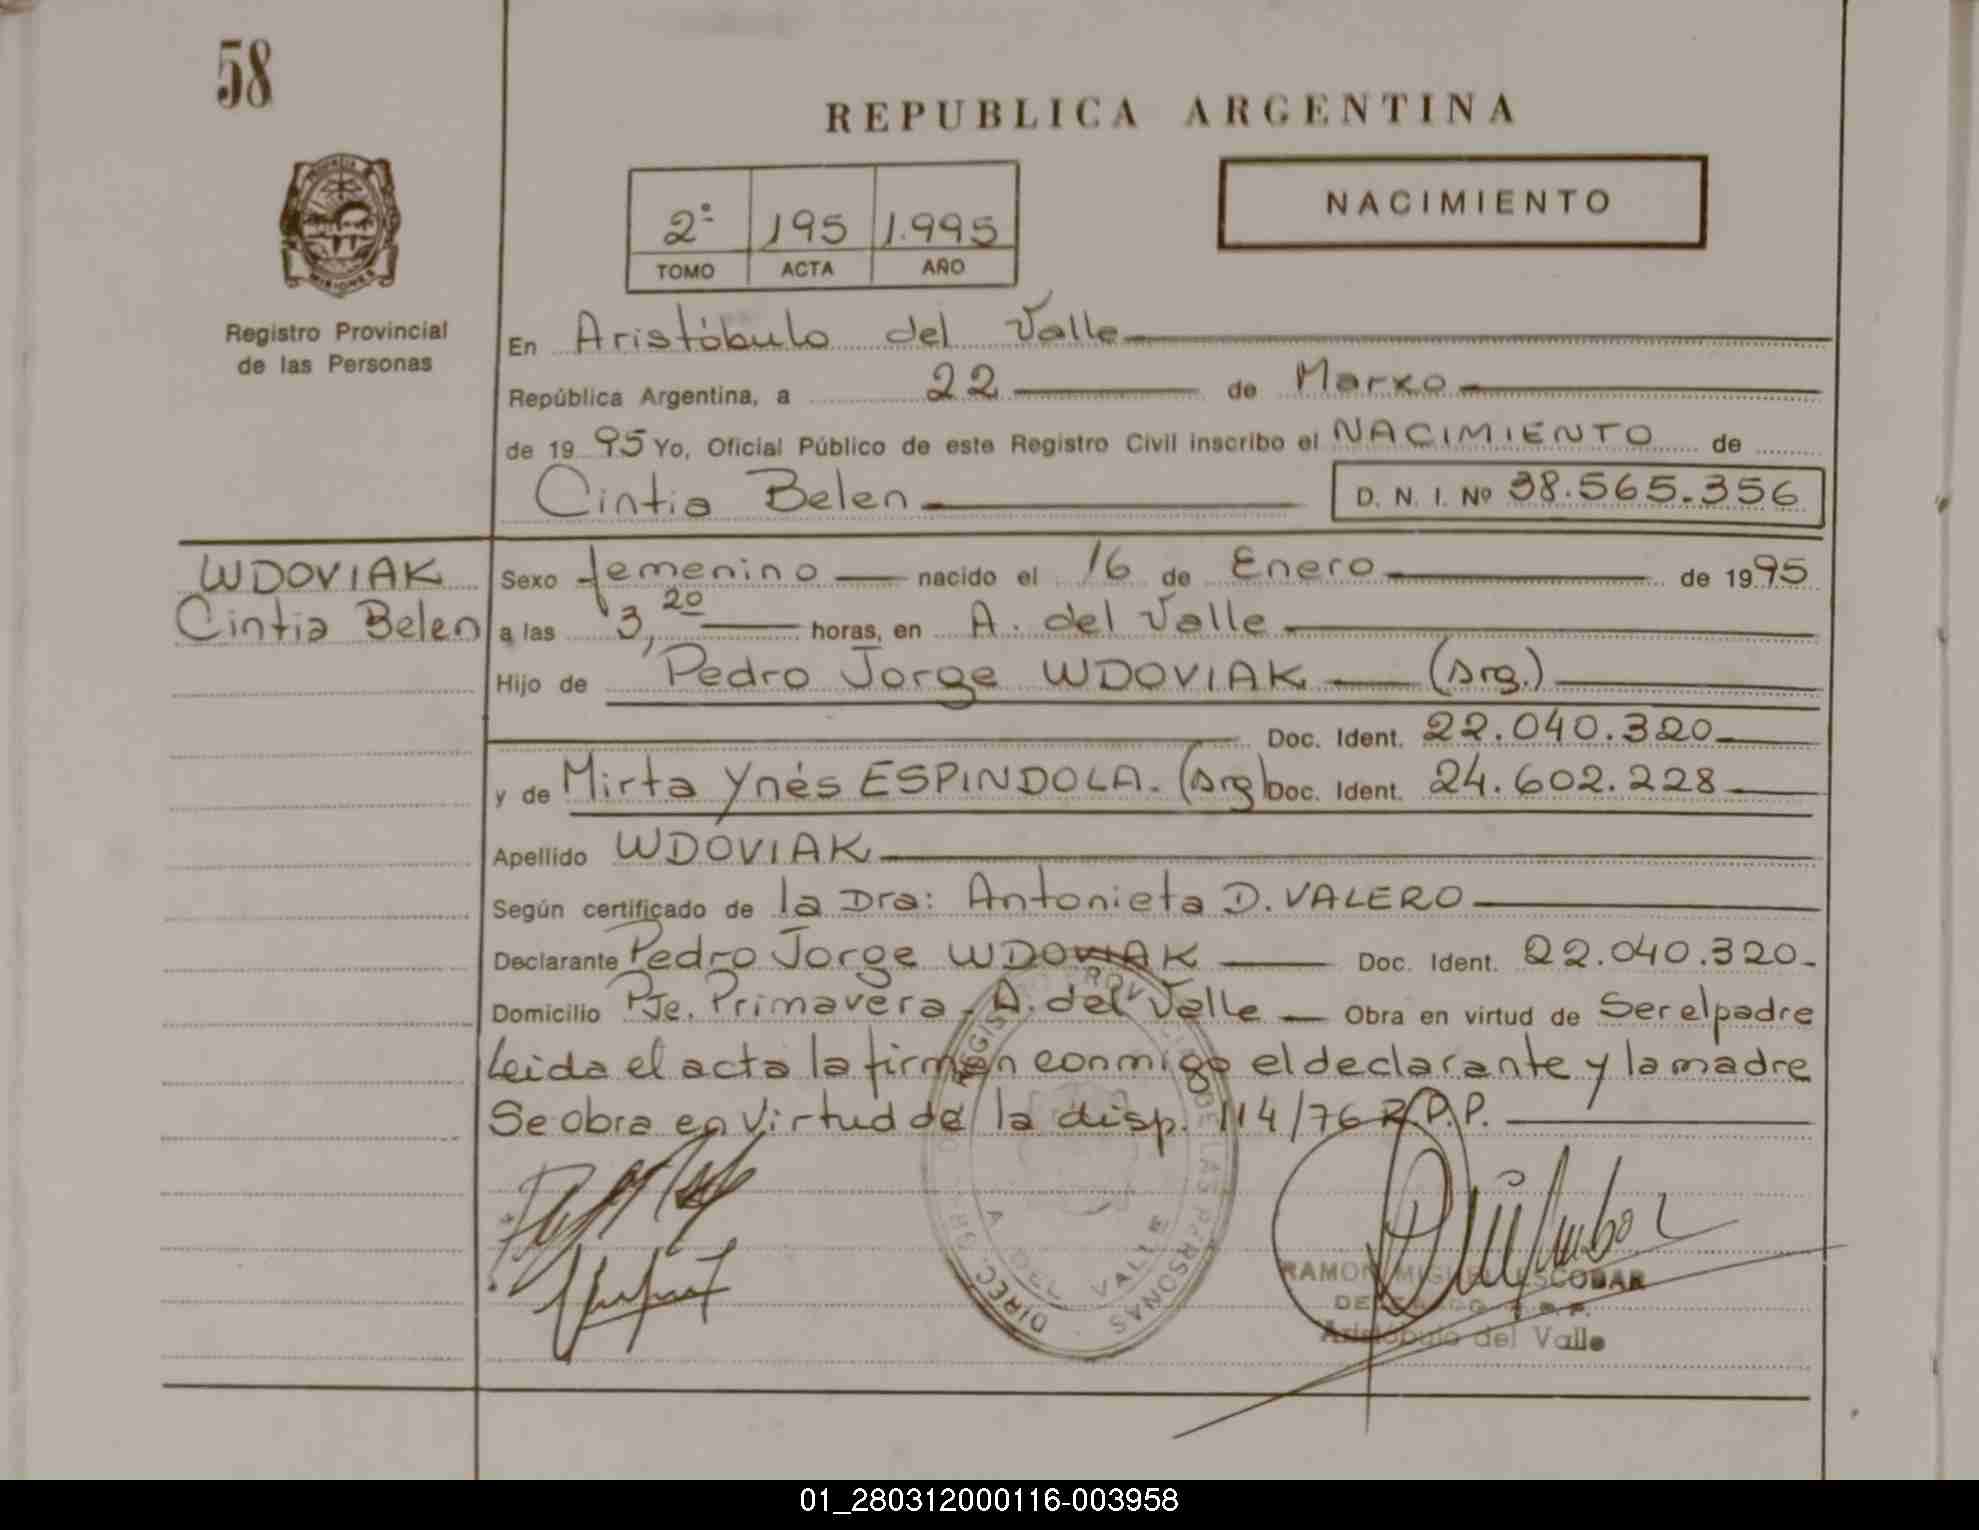 58
REPUBLICA ARGENTINA
NACIMIENTO
2º 195 1.995
TOMO ACTA AÑO
PROVINCIA DE MISIONES
Registro Provincial
de las Personas
En Aristóbulo del Valle
República Argentina, a 22 de Marxo
de 19 95 Yo, Oficial Público de este Registro Civil inscribo el NACIMIENTO de
Cintia Belen D. N. I. Nº 38.565.356
WDOVIAK
Cintia Belen
Sexo femenino nacido el 16 de Enero de 19 95
a las 3,20 horas, en A. del Valle
Hijo de Pedro Jorge WDOVIAK (Arg.)
Doc. Ident. 22.040.320
y de Mirta Ynés ESPINDOLA. (Arg) Doc. Ident. 24.602.228
Apellido WDOVIAK
Según certificado de la Dra: Antonieta D. VALERO
Declarante Pedro Jorge WDOVIAK Doc. Ident. 22.040.320
Domicilio Pje. Primavera - A. del Valle Obra en virtud de Ser el padre
Leida el acta la firman conmigo el declarante y la madre
Se obra en virtud de la disp. 114/76 R.P.P.
DIREC. GRAL. DEL REGISTRO PROVINCIAL DE LAS PERSONAS
A. DEL VALLE
RAMON MIGUEL ESCOBAR
DELEGADO R. P. P.
Aristóbulo del Valle
01_280312000116-003958